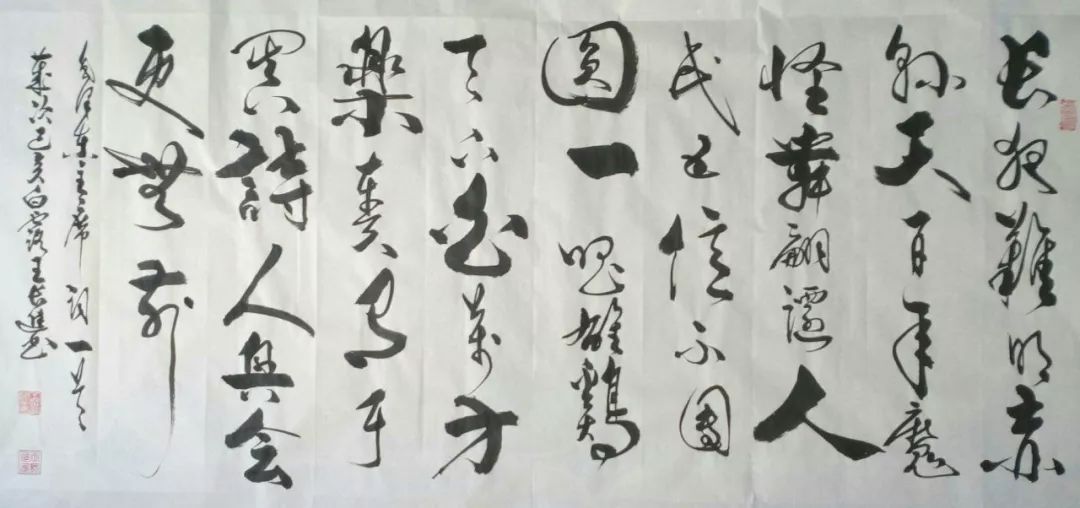 長夜難明赤
縣天百年魔
怪舞翩躚人
民五億不團
圓一唱雄鷄
天下白萬方
樂奏有于
闐詩人興会
更無前
毛泽东主席词一首
歲次己亥白露王長進书